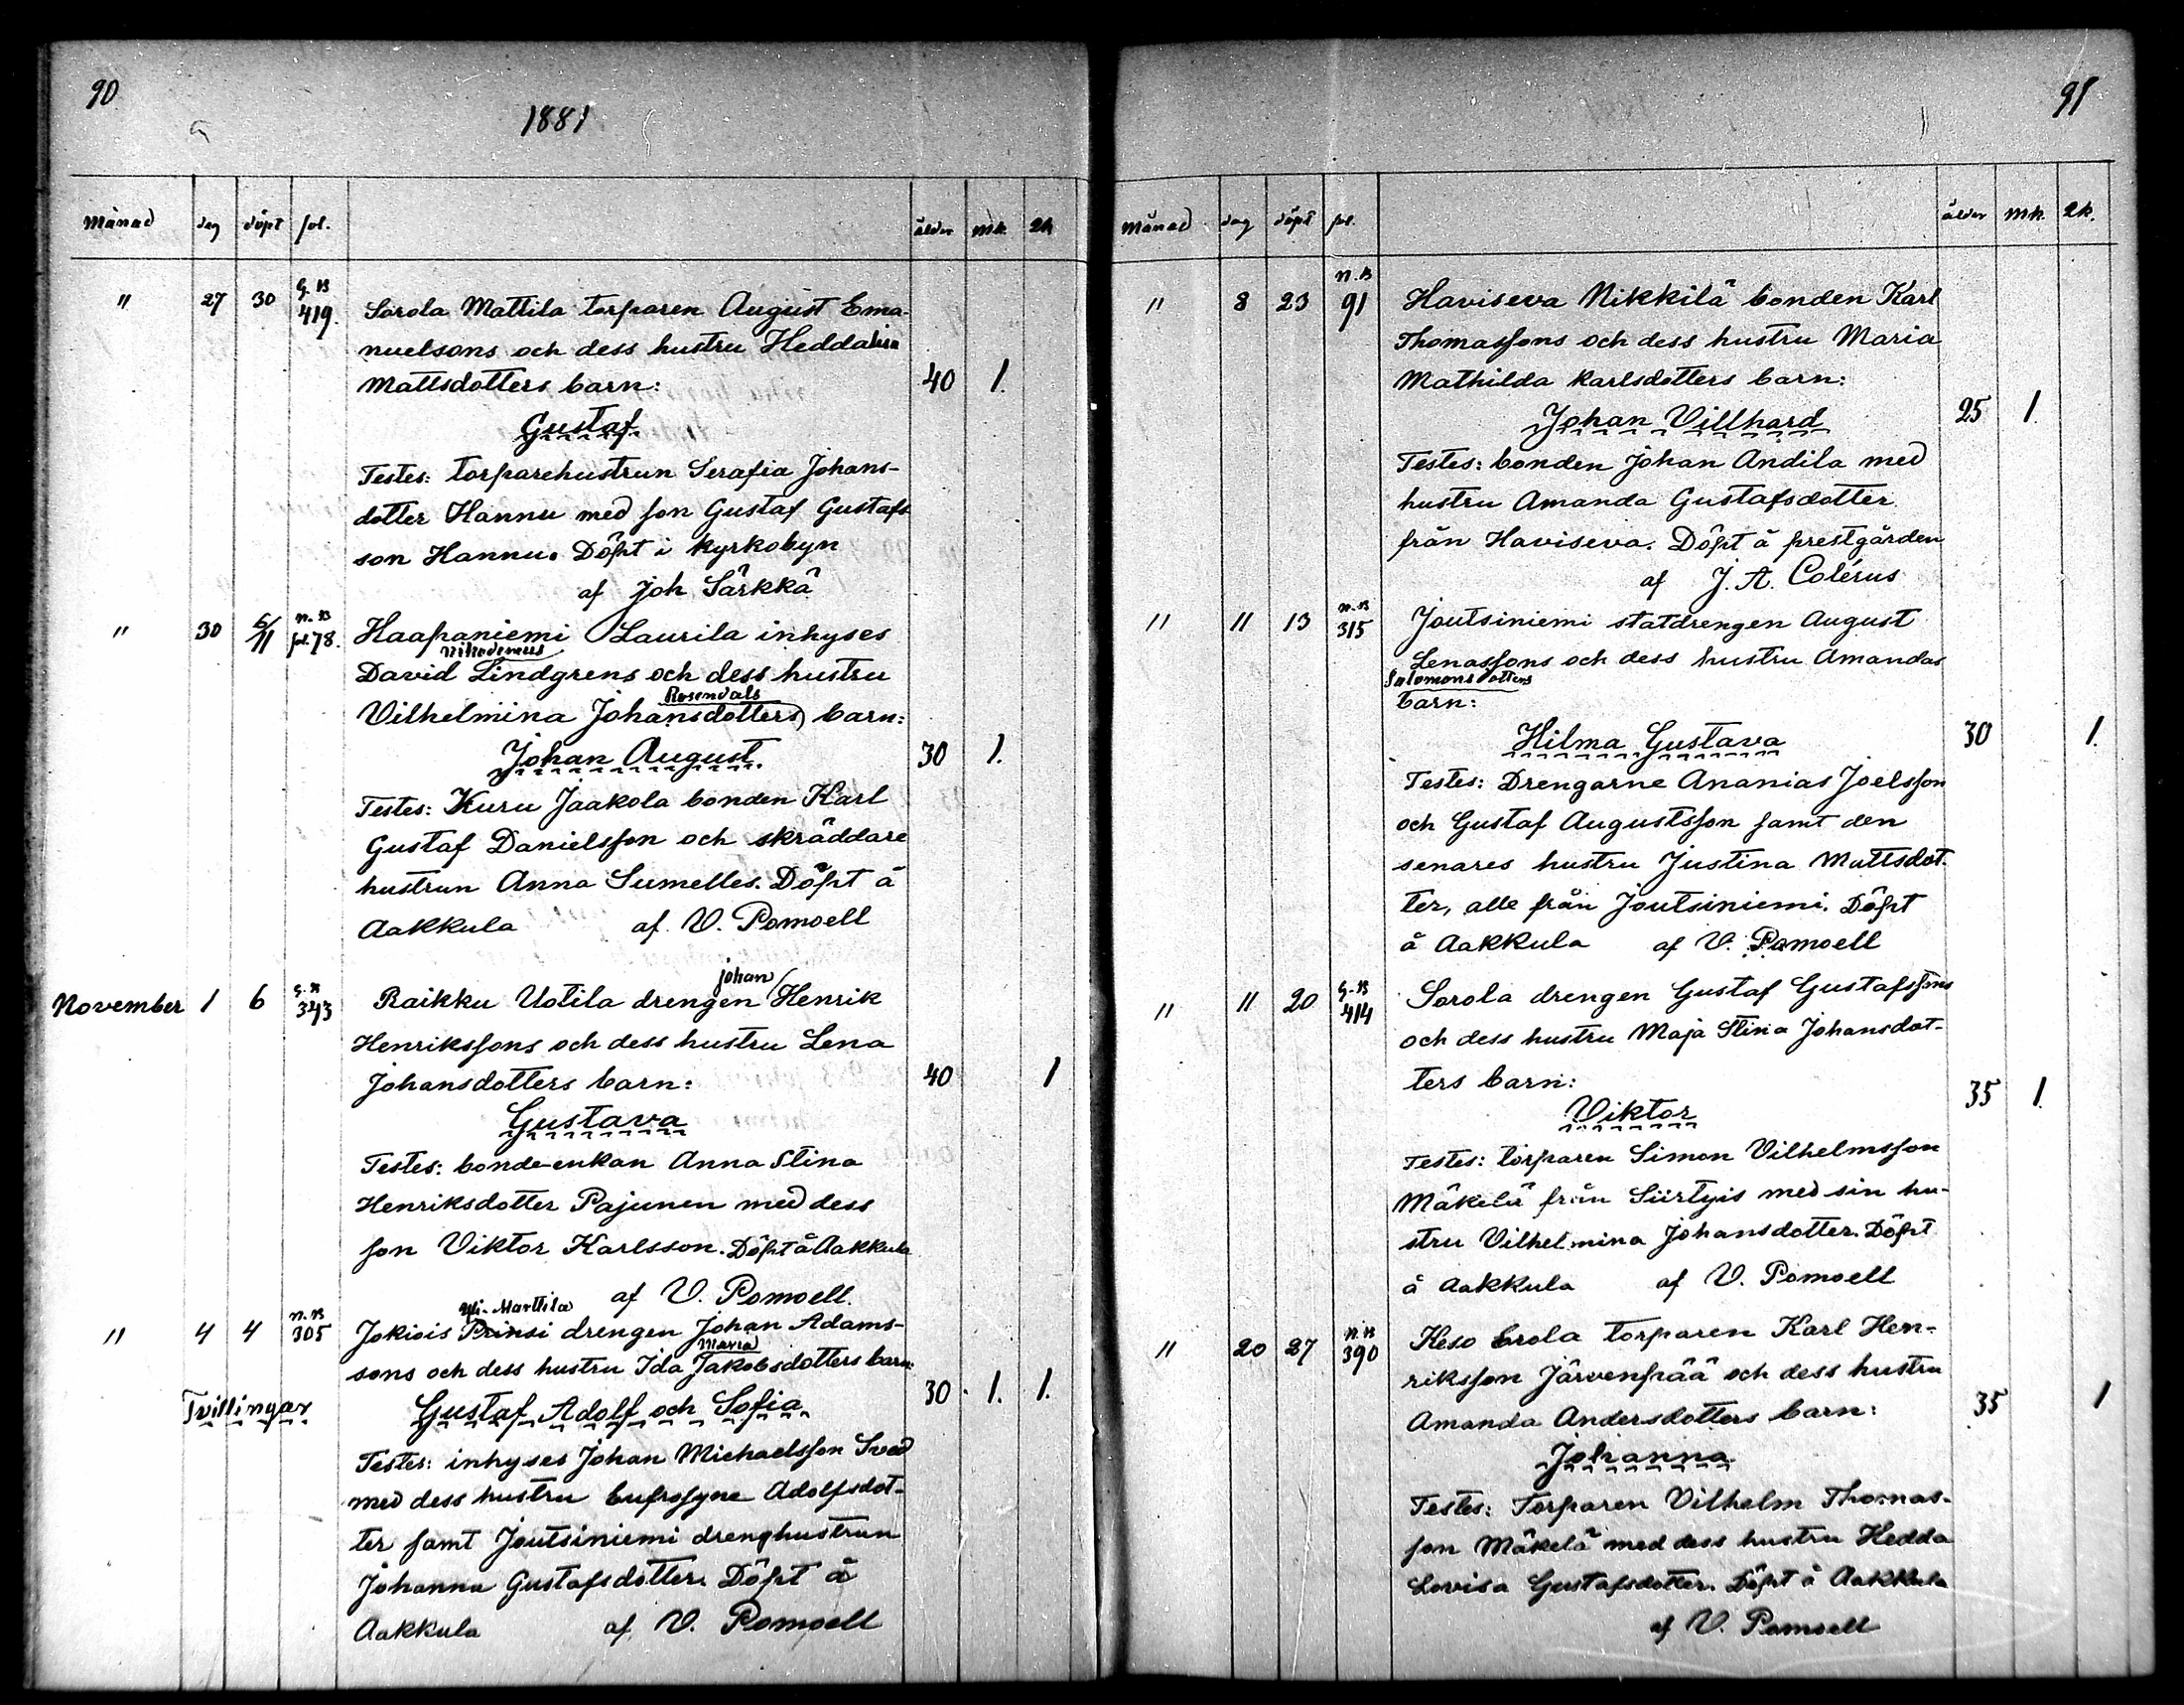 90
1881
Månad dag döpt fol. ålder mk. 2k
G. B
" 27 30 419. Sorola Mattila torparen August Ema-
nuelsons och dess hustru Heddalisa
Mattsdotters barn: 40 1.
Gustaf
Testes: torparehustrun Serafia Johans-
dotter Hannu med son Gustaf Gustafs
son Hannu. Döpt i kyrkobyn
af Joh Särkkä
N. B
" 30 6/11 fol. 78. Haapaniemi Laurila inhyses
Nikodemus
David Lindgrens och dess hustru
Rosendals
Vilhelmina Johansdotters barn:
Johan August. 30 1.
Testes: Kuru Jaakola bonden Karl
Gustaf Danielsson och skräddare
hustrun Anna Sumelles. Döpt å
Aakkula af V. Pomoell
johan
G. B
November 1 6 343 Raikku Uotila drengen Henrik
Henrikssons och dess hustru Lena
Johansdotters barn: 40 1
Gustava
Testes: bonde-enkan Anna Stina
Henriksdotter Pajunen med dess
son Viktor Karlsson. Döpt å Aakkula
af V. Pomoell.
Yli-Marttila
N. B
" 4 4 305 Jokiois Prinsi drengen Johan Adams-
Maria
sons och dess hustru Ida Jakobsdotters barn:
Tvillingar Gustaf Adolf och Sofia. 30. 1. 1.
Testes: inhyses Johan Michaelsson Sved
med dess hustru Eufrosyne Adolfsdot-
ter samt Joutsiniemi drenghustrun
Johanna Gustafsdotter. Döpt å
Aakkula af V. Pomoell
91
Månad dag döpt fol. ålder mk. 2k.
N. B
" 8 23 91 Haviseva Nikkilä bonden Karl
Thomassons och dess hustru Maria
Mathilda Karlsdotters barn:
Johan Villhard 25 1.
Testes: bonden Johan Andila med
hustru Amanda Gustafsdotter
från Haviseva. Döpt å prestgården
af J. A. Colérus
N. B
" 11 13 315 Joutsiniemi statdrengen August
Lenassons och dess hustru Amandas
Salomonsdotters
barn:
Hilma Gustava 30 1.
Testes: Drengarne Ananias Joelsson
och Gustaf Augustsson samt den
senares hustru Justina Mattsdot-
ter, alle från Joutsiniemi. Döpt
å Aakkula af V. Pomoell
G. B
" 11 20 414 Sorola drengen Gustaf Gustafssons
och dess hustru Maja Stina Johansdot-
ters barn:
Viktor 35 1.
Testes: torparen Simon Vilhelmsson
Mäkelä från Siirtyis med sin hu-
stru Vilhelmina Johansdotter. Döpt
å Aakkula af V. Pomoell
N. B
" 20 27 390 Keso Erola torparen Karl Hen-
riksson Järvenpää och dess hustru
Amanda Andersdotters barn: 35 1
Johanna
Testes: Torparen Vilhelm Thomas-
son Mäkelä med dess hustru Hedda
Lovisa Gustafsdotter. Döpt å Aakkula
af V. Pomoell